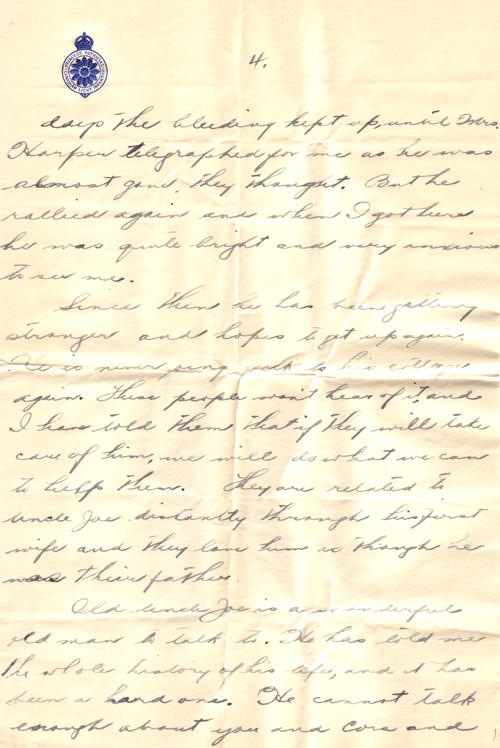 4.
days the bleeding kept up, until Mrs.
Harper telegraphed for me as he was
almost gone, they thought. But he
rallied again and when I got here
he was quite bright and very anxious
to see me.
Since then he has been getting
stronger and hopes to get up again.
He is never going back to his cottage
again. These people won't hear of it, and
I have told them that if they will take
care of him, we will do what we can
to help them. They are related to
Uncle Joe distantly through his first
wife and they love him as though he
was their father.
Old Uncle Joe is a wonderful
old man to talk to. He has told me
the whole history of his life, and it has
been a hard one. He cannot talk
enough about you and Cora and